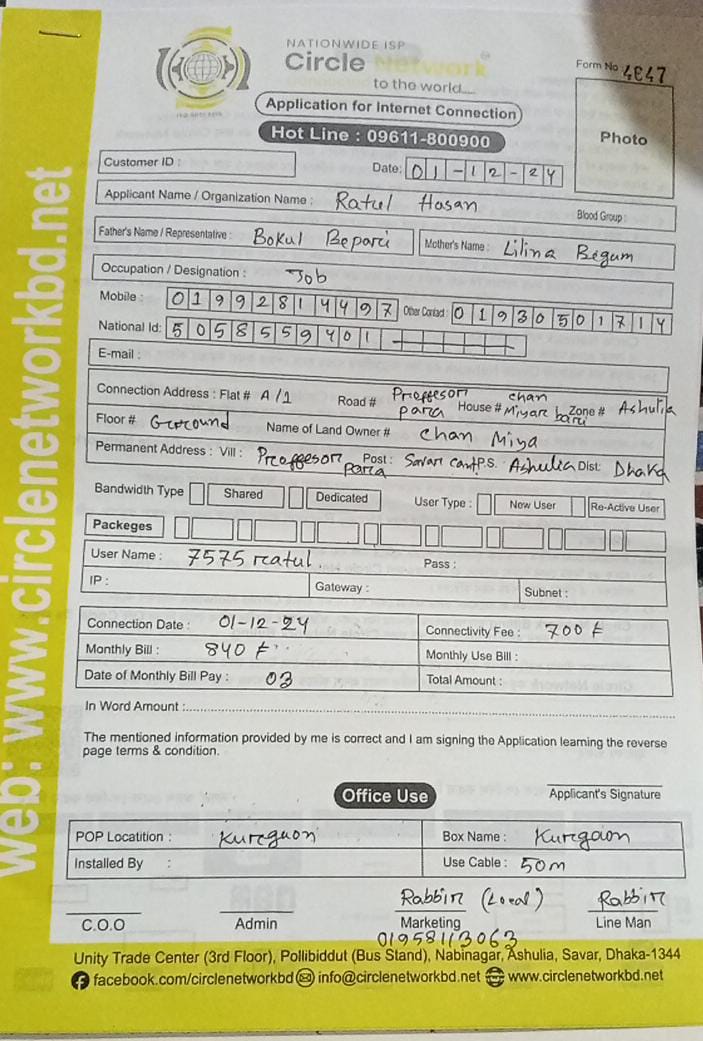 NATIONWIDE ISP
Circle Network
to the world....
Form No 4847
Application for Internet Connection
Hot Line : 09611-800900
Photo
Customer ID :
Date: 01-12-24
Applicant Name / Organization Name : Ratul Hasan Blood Group :
Father's Name / Representative : Bokul Bepari Mother's Name : Lilina Begum
Occupation / Designation : Job
Mobile : 01992814497 Other Contact : 01930501714
National Id: 5058559401
E-mail :
Connection Address : Flat # A/1 Road # Proffesor para House # chan Miyar bari Zone # Ashulia
Floor # Ground Name of Land Owner # Chan Miya
Permanent Address : Vill : Proffesor para Post : Savar cant P.S. Ashulia Dist: Dhaka
Bandwidth Type Shared Dedicated User Type : New User Re-Active User
Packeges
User Name : 7575 ratul. Pass :
IP : Gateway : Subnet :
Connection Date : 01-12-24 Connectivity Fee : 700 ৳
Monthly Bill : 840 ৳ Monthly Use Bill :
Date of Monthly Bill Pay : 03 Total Amount :
In Word Amount :
The mentioned information provided by me is correct and I am signing the Application learning the reverse
page terms & condition.
Office Use
Applicant's Signature
POP Locatition : Kurgaon Box Name : Kurgaon
Installed By : Use Cable : 50m
Rabbir (Local) Rabbir
C.O.O Admin Marketing Line Man
01958113063
Unity Trade Center (3rd Floor), Pollibiddut (Bus Stand), Nabinagar, Ashulia, Savar, Dhaka-1344
facebook.com/circlenetworkbd info@circlenetworkbd.net www.circlenetworkbd.net
web: www.circlenetworkbd.net